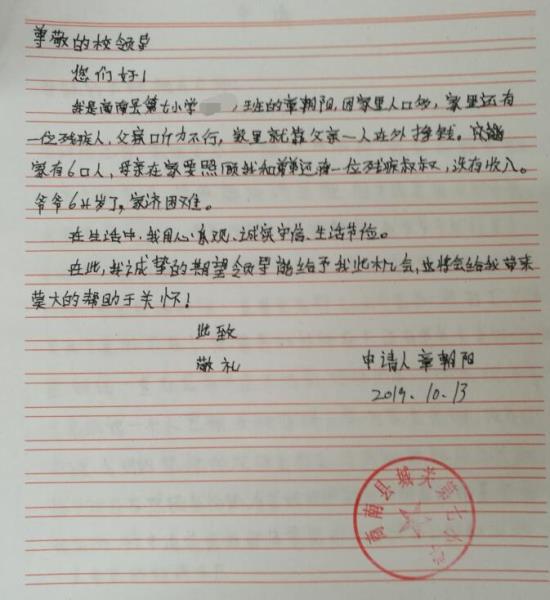 尊敬的校领导
您们好!
我是商南县第七小学 班的章朝阳,因家里人口多,家里还有
一位残疾人,父亲听力不行,家里就靠父亲一人在外挣钱。
家有6口人,母亲在家要照顾我和爷爷还有一位残疾叔叔,没有收入。
爷爷6 岁了,家济困难。
在生活中,我用心乐观、诚实守信、生活节俭。
在此,我诚挚的期望领导能给予我此机会,这将会给我带来
莫大的帮助于关怀!
此致
敬礼 申请人章朝阳
2019.10.13
商南县城关第七小学